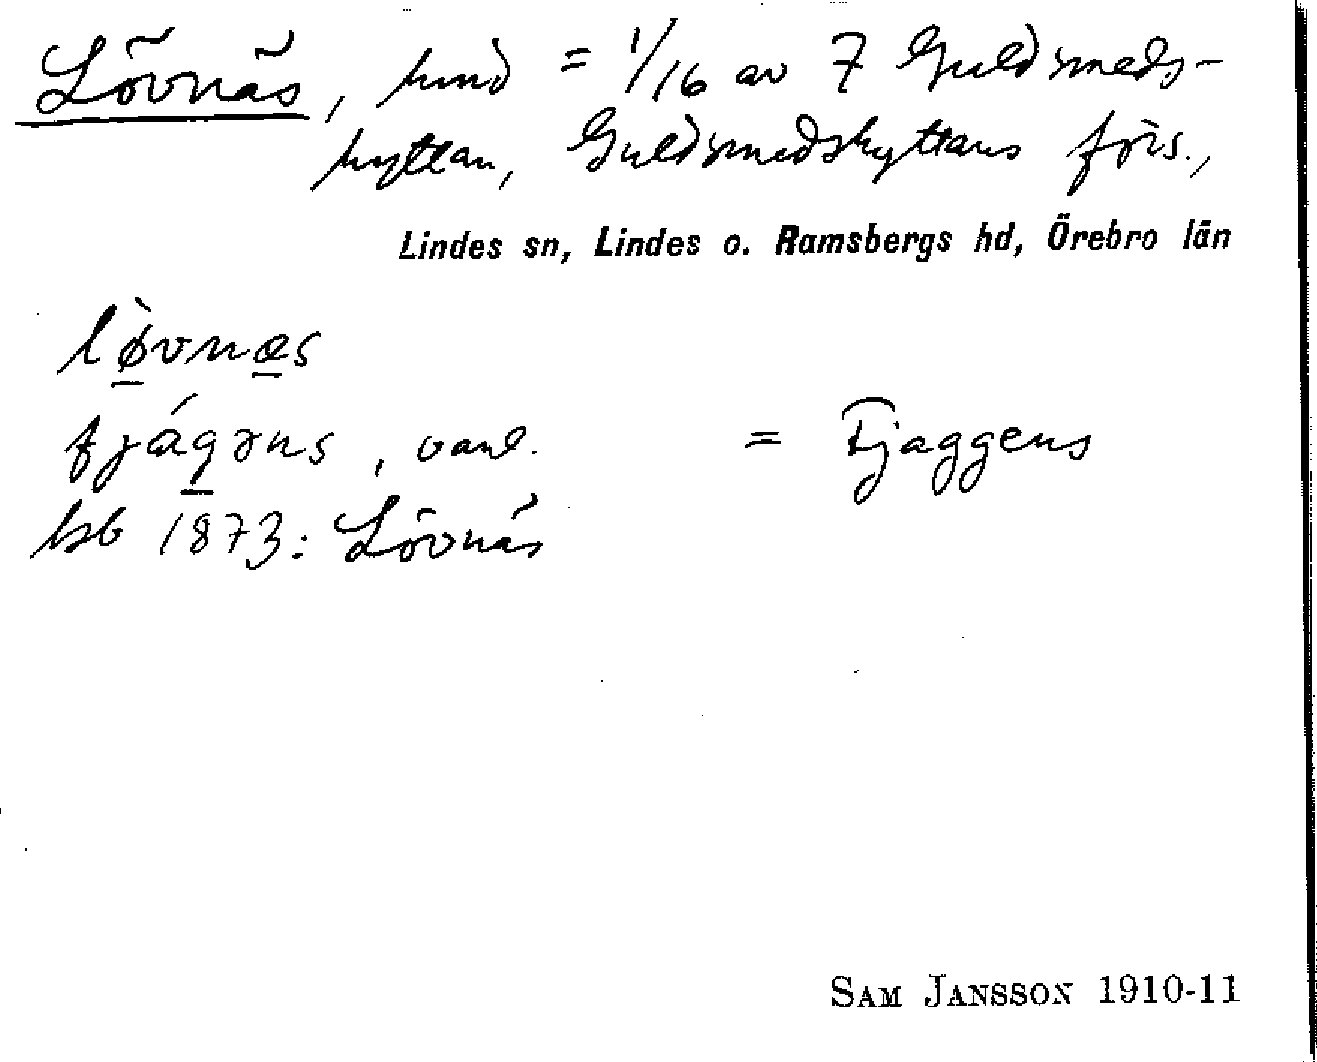 Lövnäs, hmd = 1/16 av 7 Guldsmeds-
hyttan, Guldsmedshyttans förs.,
Lindes sn, Lindes o. Ramsbergs hd, Örebro län
lø̀vnæs
fjágəns, vanl. = Fjaggens
hsb 1873: Lövnäs
SAM JANSSON 1910-11